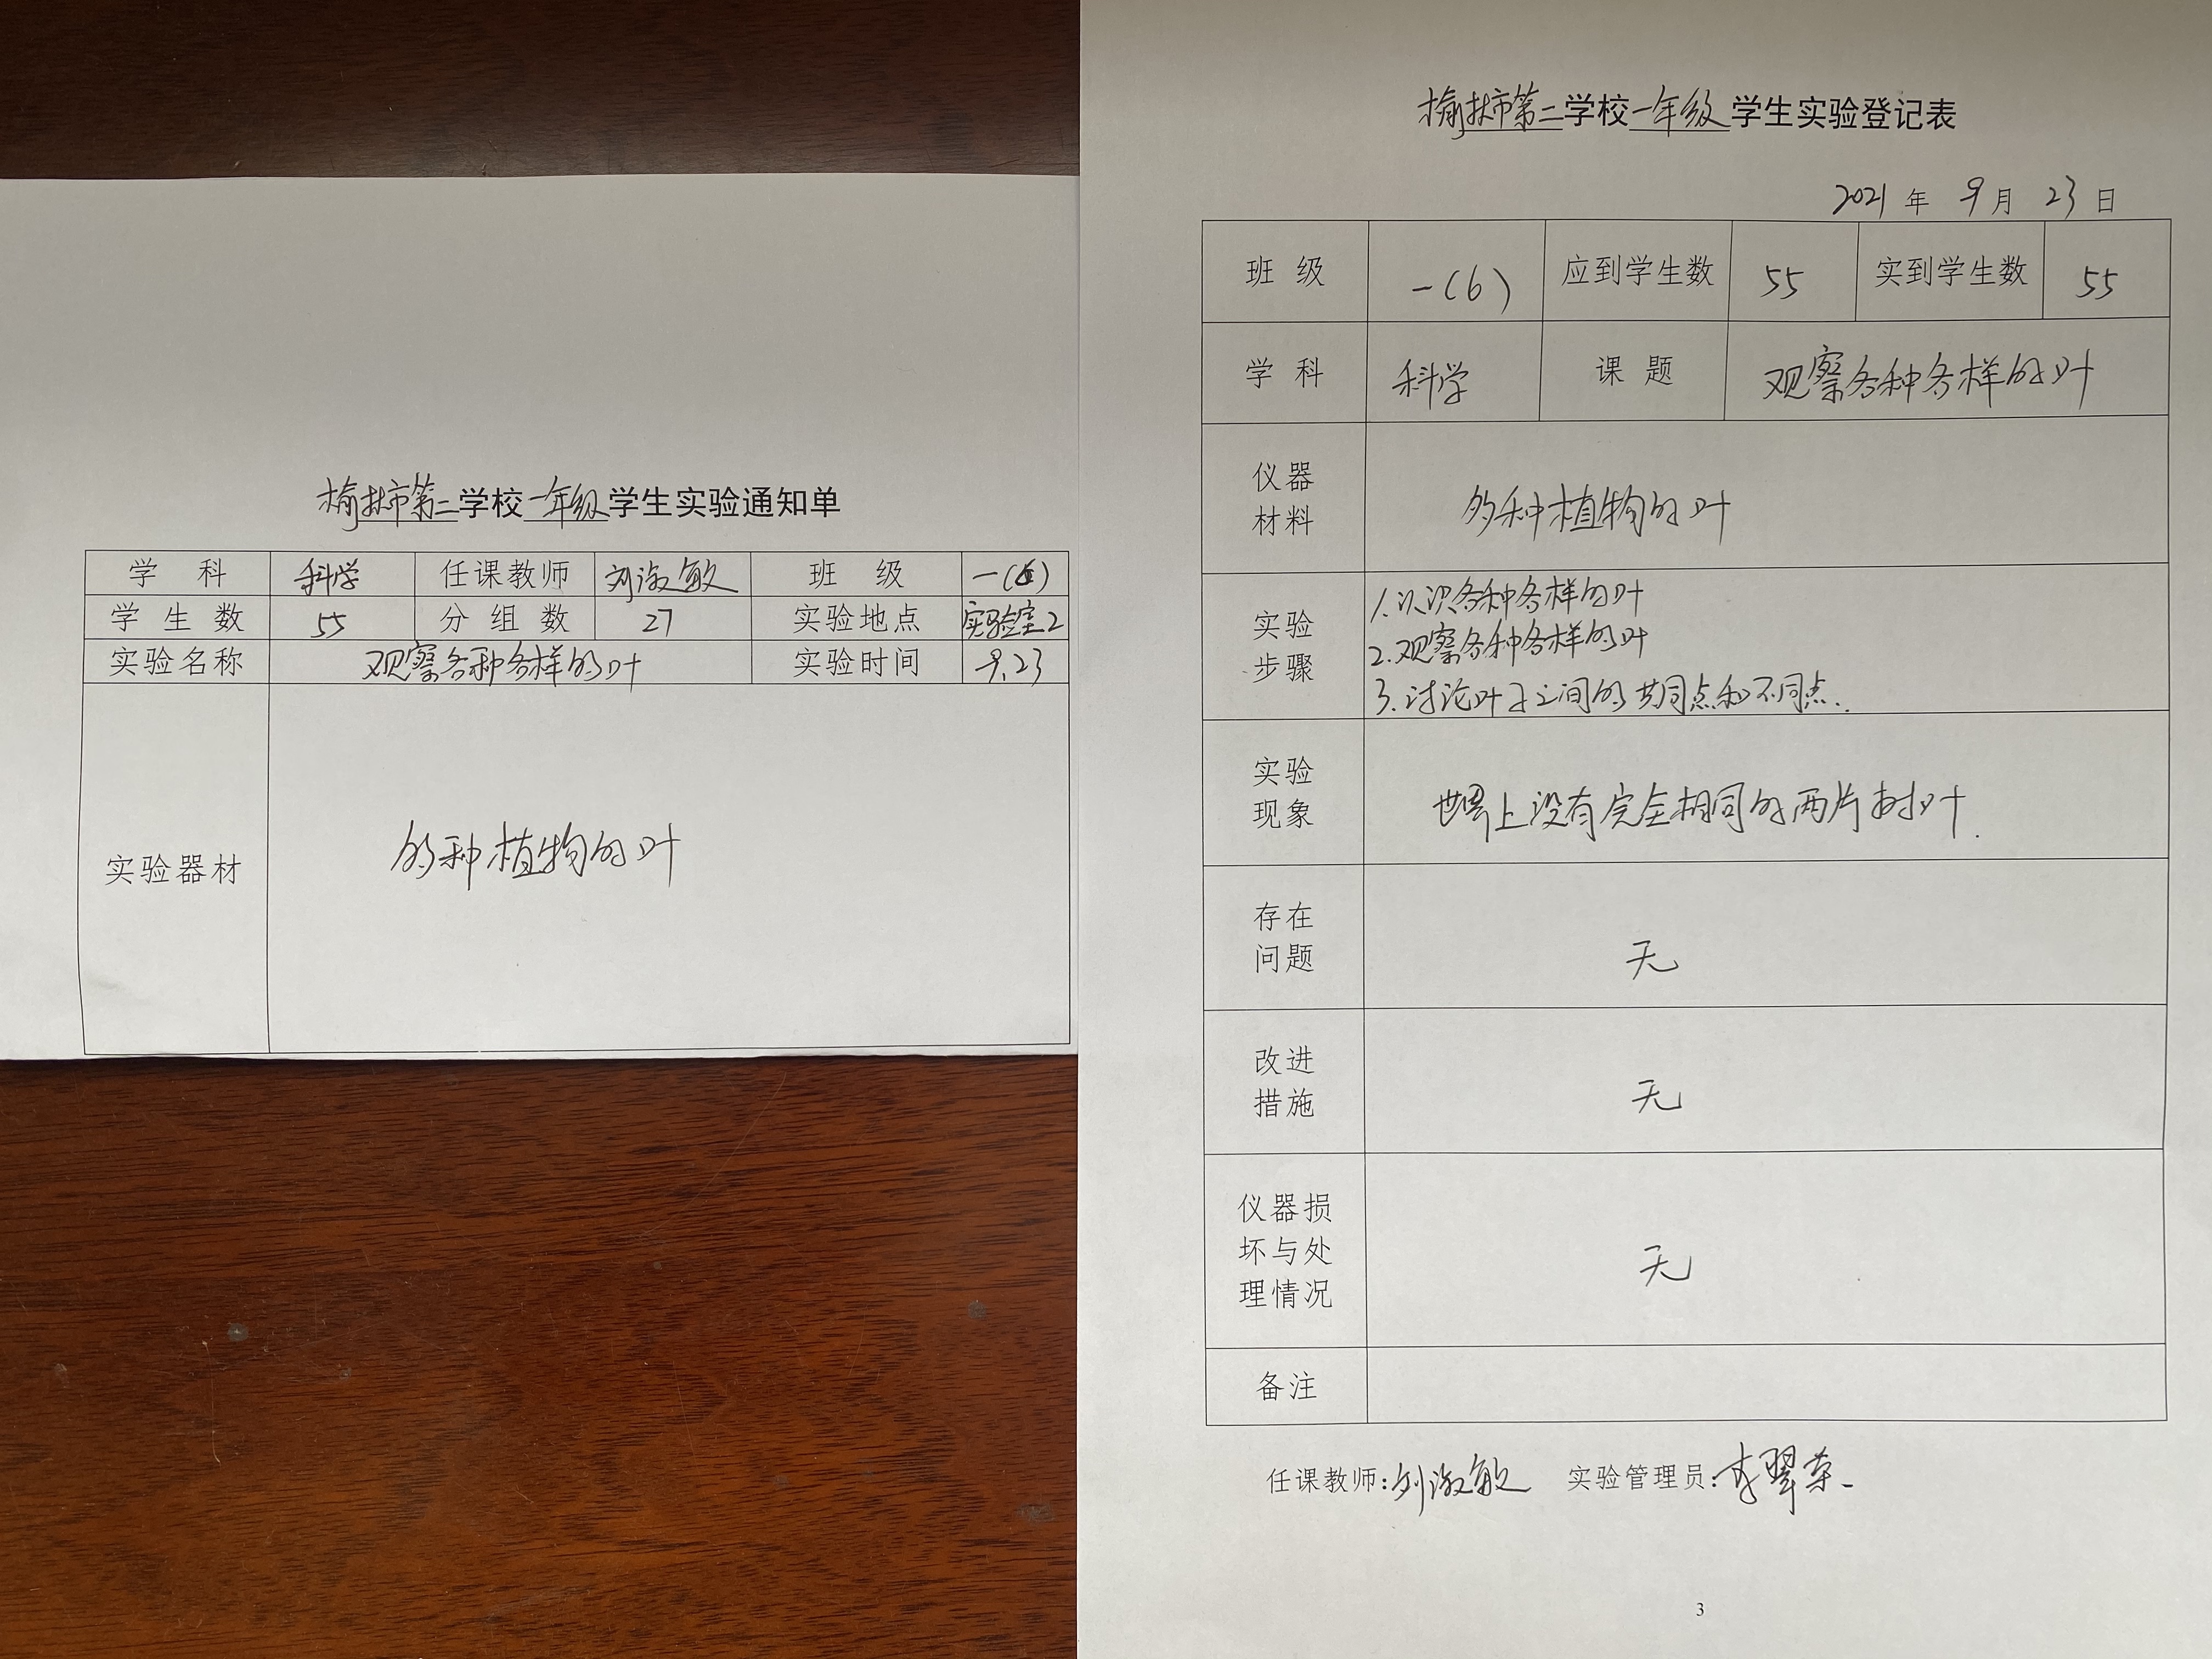 榆林市第二学校一年级学生实验通知单
学 科 科学 任课教师 刘淑敏 班 级 一(6)
学 生 数 55 分 组 数 27 实验地点 实验室2
实验名称 观察各种各样的叶 实验时间 9.23
实验器材 多种植物的叶
榆林市第二学校一年级学生实验登记表
2021 年 9 月 23 日
班 级 一(6) 应到学生数 55 实到学生数 55
学 科 科学 课 题 观察各种各样的叶
仪器
材料
多种植物的叶
实验
步骤
1.认识各种各样的叶
2.观察各种各样的叶
3.讨论叶子之间的共同点和不同点.
实验
现象
世界上没有完全相同的两片树叶.
存在
问题
无
改进
措施
无
仪器损
坏与处
理情况
无
备注
任课教师:刘淑敏 实验管理员:李翠荣
3